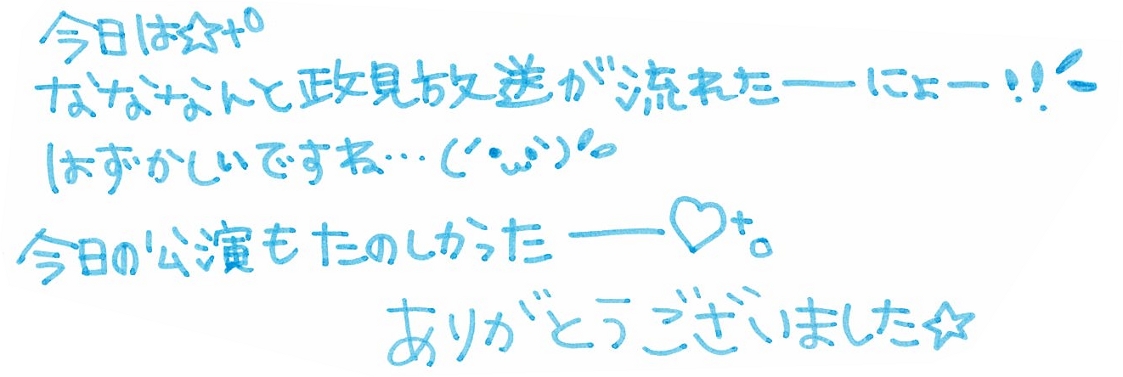 今日は☆+°
なななななんと政見放送が流れたーーにょー!!
はずかしいですね…(´・ω・`)
今日の公演もたのしかったーー♡+。
ありがとうございました☆